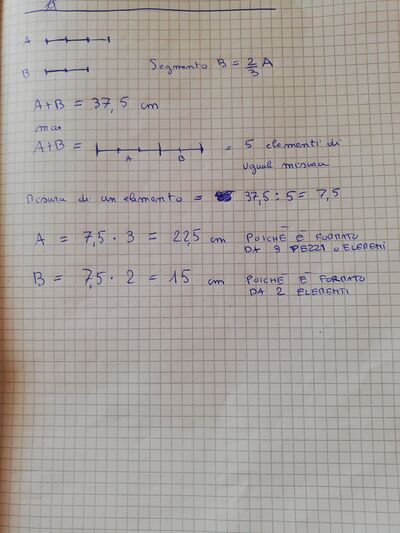 A
A
B
Segmento B = 2/3 A
A+B = 37,5 cm
ma
A+B = A B = 5 elementi di
ugual misura
Misura di un elemento = 37,5 : 5 = 7,5
A = 7,5 · 3 = 22,5 cm POICHÉ È FORMATO
DA 3 PEZZI o ELEMENTI
B = 7,5 · 2 = 15 cm POICHÉ È FORMATO
DA 2 ELEMENTI